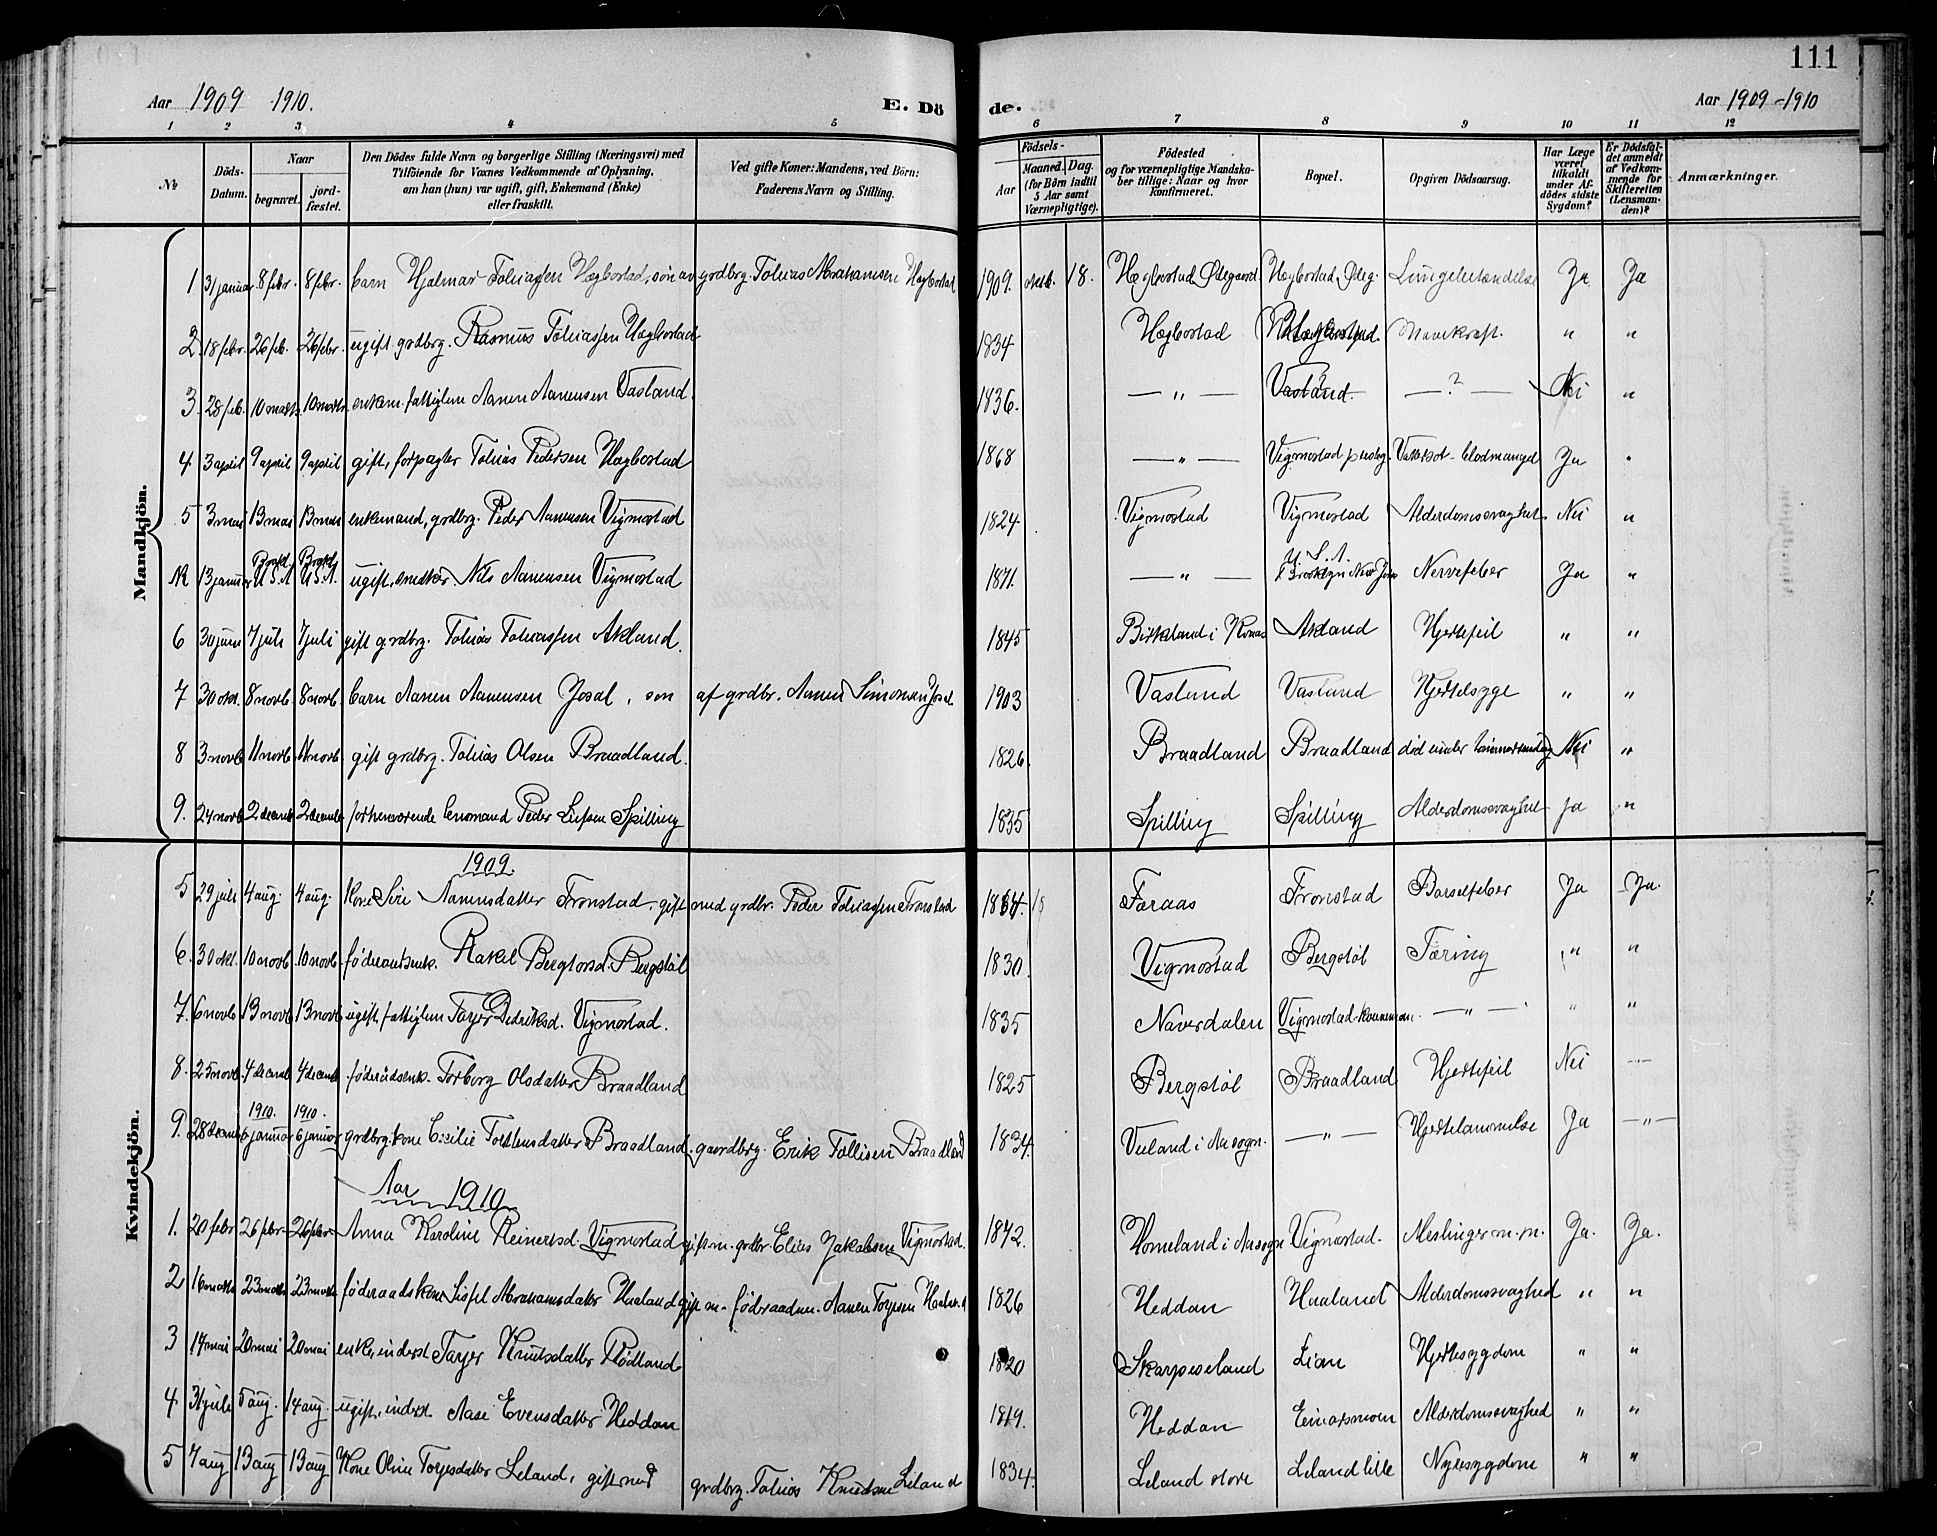 111
Aar 1909 1910. E. Dö de. Aar 1909-1910
1 2 3 4 5 6 7 8 9 10 11 12
№ Döds-Datum. Naar begravet. jord-fæstet. Den Dödes fulde Navn og borgerlige Stilling (Næringsvei) med Tilföiende for Voxnes Vedkommende af Oplysning, om han (hun) var ugift, gift, Enkemand (Enke) eller fraskilt. Ved gifte Koner: Mandens, ved Börn: Faderens Navn og Stilling. Födsels- Aar Maaned. Dag. (for Börn indtil 5 Aar samt Værnepligtige). Födested og for værnepligtige Mandskaber tillige: Naar og hvor konfirmeret. Bopæl. Opgiven Dödsaarsag. Har Læge været tilkaldt under Afdödes sidste Sygdom? Er Dödsfaldet anmeldt af Vedkommende for Skifteretten (Lensmanden)? Anmærkninger.
Mandkjön.
1 31 januar 8 febr. 8 febr. barn Hjalmar Tobiassen Hægbostad, søn av grdbrg. Tobias Abrahamsen Hægbostad 1909. oktb. 18. Hægbostad Ødegaard Hægbostad Ødeg. Lungebetændelse Ja Ja
2 18 febr. 26 feb. 26 febr. ugift grdbrg. Rasmus Tobiassen Hægbostad 1834 Hægbostad Hægbostad. Mavekræft. " "
3. 28 feb. 10 marts. 10 marts. enkem. fattiglem Aanen Aanensen Vasland. 1836. — " — Vasland. — ? — Nei "
4 3 april 9 april 9 april gift, forpagter Tobias Pedersen Hægbostad 1868 — " — Vigmostad presteg. Vattersot - blodmangel Ja "
5 3 mai 13 mai 13 mai enkemand, grdbrg. Peder Aanensen Vigmostad 1824 Vigmostad Vigmostad Alderdomssvaghet. Nei "
13 januar U.S.A. U.S.A. ugift, snedker Nils Aanensen Vigmostad 1871. — " — U.S.A. Brooklyn New Jork Nervefeber Ja "
6 30 juni 7 juli 7 juli gift grdbrg. Tobias Tobiassen Akland. 1845 Birkland i Konas Akland Hjertefeil " "
7 30 okt. 8 novb. 8 novb. barn Aanen Aanensen Josal, søn af grdbr. Aanen Simonsen Josal 1903 Vasland Vasland Hjertesyge " "
8 3 novb 11 novb. 11 novb. gift grdbrg. Tobias Olsen Braadland. 1826. Braadland Braadland død under tømmersendig Nei "
9. 24 novb. 2 decemb 2 decemb forhenværende lensmand Peder Spilling 1835 Spilling Spilling Alderdomssvaghet Ja "
Kvindekjön.
1909.
5 29 juli 4 aug. 4 aug. Kone Siri Aanensdatter Tronstad, gift med grdbr. Peder Tobiassen Tronstad 1864. Faraas Tronstad Barselfeber Ja Ja.
6. 30 okt. 10 novb. 10 novb. føderaadsenk. Rakel Bergtorsd. Bergstøl 1830. Vigmostad Bergstøl Tæring " "
7. 6 novb 13 novb 13 novb ugift, fattiglem Tarjer Didriksd. Vigmostad. 1835 Naverdalen Vigmostad — " — " "
8. 25 novb. 4 decemb 4 decemb føderaadsenk. Torborg Olsdatter Braadland 1825 Bergstøl Braadland Hjertefeil Nei — " —
1910. 1910.
9. 28 decemb 6 januar 6 januar grdbrg. kone Cecilie Torkelsdatter Braadland, gaardbrg. Erik Tollisen Braadland 1834. Veeland i Aa sogn. — " — Hjertelammelse Ja — " —
Aar 1910
1. 20 febr 26 febr. 26 febr. Anna Karoline Reinertsd. Vigmostad gift m. grdbr. Elias Jakobsen Vigmostad. 1872. Homeland i Aa sogn Vigmostad. Meslinger m.m. Ja. Ja.
2 16 marts 23 marts 23 marts føderaadskone Lispet Abrahamsdatter Haaland gift m. føderaadm. Aanen Torjesen Haaland 1826 Heddan Haaland Alderdomssvaghed " "
3 14 mai 20 mai 20 mai enke, inderst Tarjer Knutsdatter Rødland 1820 Skarpeseland Lian Hjertesygdom " "
4 31 juli 5 aug. 14 aug. ugift, inderst Aase Evensdatter Heddan 1819. Heddan Einarsmoen Alderdomssvaghed " "
5 7 aug 13 aug 13 aug Kone Oline Torjesdatter Leland, gift med grdbrg. Tobias Knudsen Leland 1834. Leland store Leland lille Nyresygdom " "